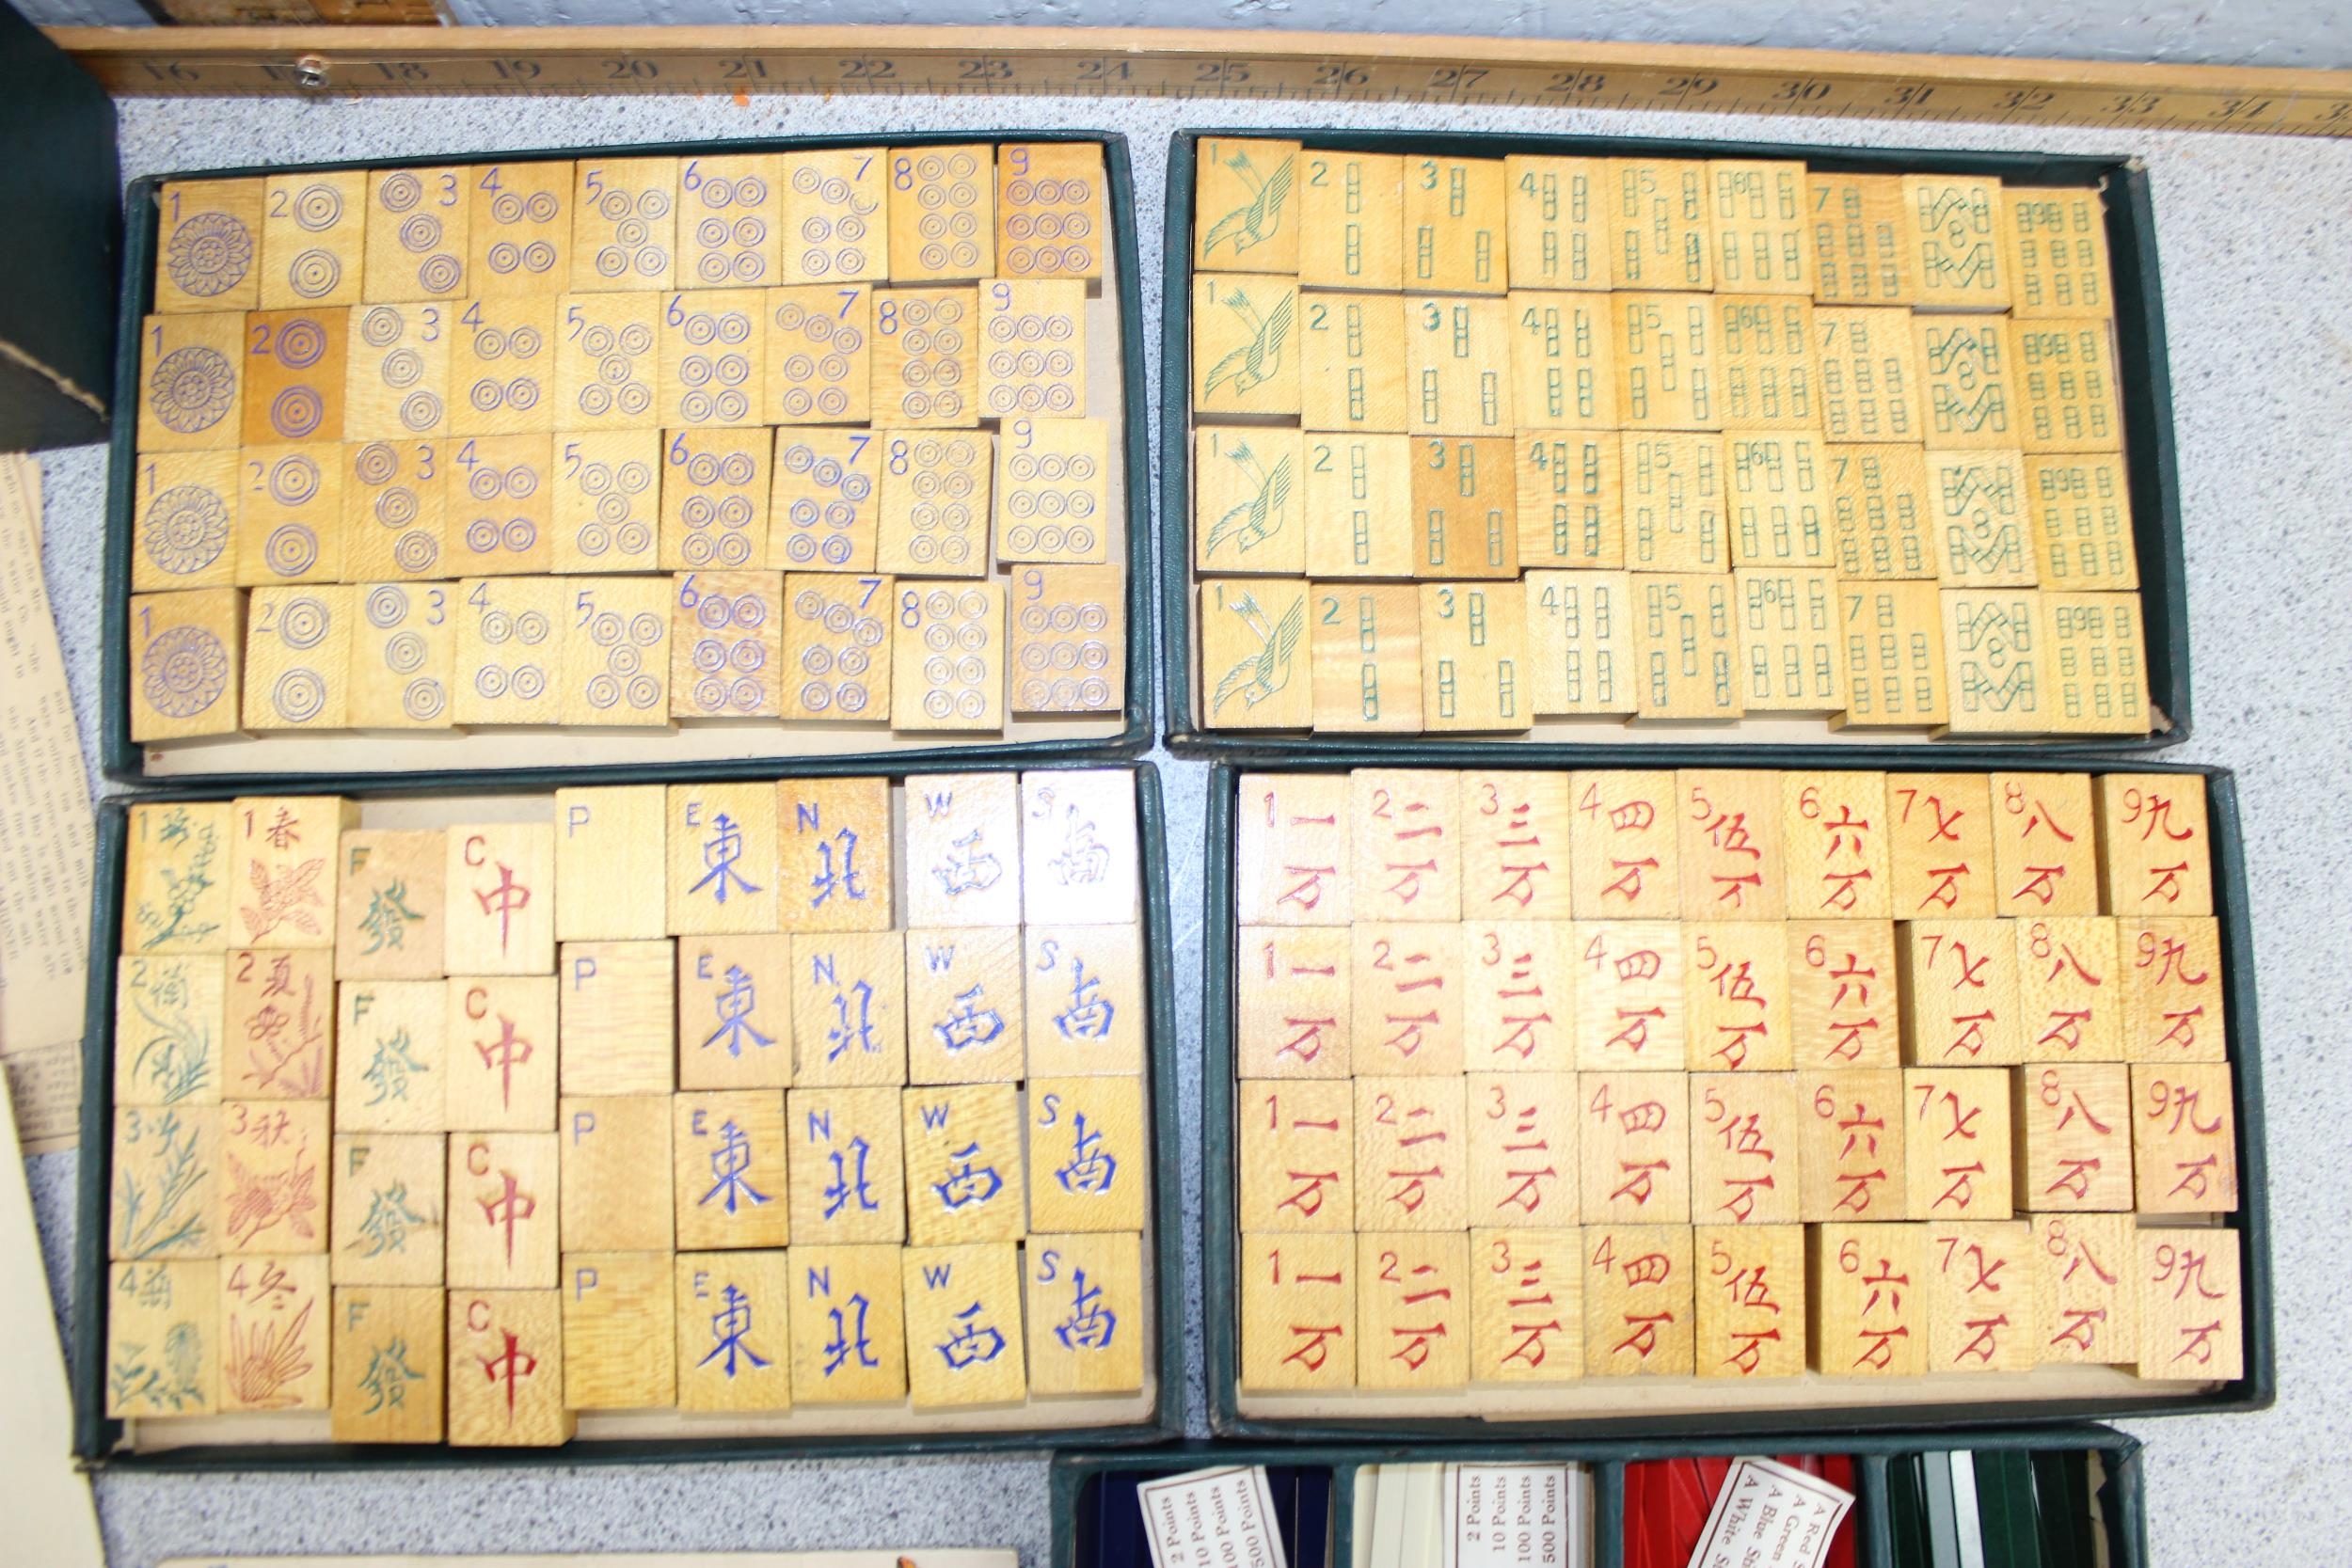 16 18 19 20 21 22 23 24 25 26 27 28 29 30 31 32 33 34
1 2 3 4 5 6 7 8 9
1 2 3 4 5 6 7 8 9
1 2 3 4 5 6 7 8 9
1 2 3 4 5 6 7 8 9
1 2 3 4 5 6 7 8 9
1 2 3 4 5 6 7 8 9
1 2 3 4 5 6 7 8 9
1 2 3 4 5 6 7 8 9
1 1 春 F 發 C 中 P E 東 N 北 W 西 S 南
2 2 夏 F 發 C 中 P E 東 N 北 W 西 S 南
3 3 秋 F 發 C 中 P E 東 N 北 W 西 S 南
4 4 冬 F 發 C 中 P E 東 N 北 W 西 S 南
1 一万 2 二万 3 三万 4 四万 5 伍万 6 六万 7 七万 8 八万 9 九万
1 一万 2 二万 3 三万 4 四万 5 伍万 6 六万 7 七万 8 八万 9 九万
1 一万 2 二万 3 三万 4 四万 5 伍万 6 六万 7 七万 8 八万 9 九万
1 一万 2 二万 3 三万 4 四万 5 伍万 6 六万 7 七万 8 八万 9 九万
2 Points
10 Points
100 Points
500 Points
2 Points
10 Points
100 Points
500 Points
A Red
A Green
A Blue
A White